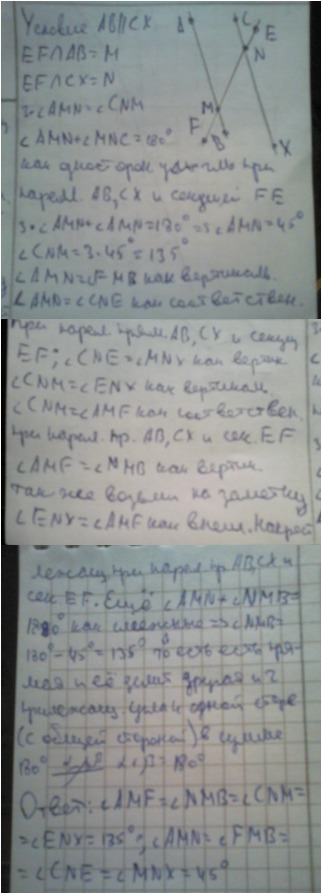 Условие AB||CX
EF∩AB=M
EF∩CX=N
3·∠AMN=∠CNM
∠AMN+∠MNC=180°
как односторон углы при
паралл. AB,CX и секущей FE
3·∠AMN+∠AMN=180°=>∠AMN=45°
∠CNM=3·45°=135°
∠AMN=∠FMB как вертикал.
∠AMN=∠CNE как соответствен.
A
C
E
N
M
F
B
X
при парал прям. AB,CX и секущ
EF; ∠CNE=∠MNX как вертик
∠CNM=∠ENX как вертикал
∠CNM=∠AMF как соответствен.
при парал. пр. AB,CX и сек. EF
∠AMF=∠NMB как вертик.
так же возьми на заметку
∠ENX=∠AMF как внешн. накрест
лежащ при парал пр AB,CX и
сек EF. Ещё ∠AMN+∠NMB=
180° как смежные =>∠NMB=
180°-45°=135° то есть есть пря-
мая и её делит другая и 2
прилежащ угла к одной стороне
(с общей стороной) в сумме
180° ∠B=180°
Ответ: ∠AMF=∠NMB=∠CNM=
=∠ENX=135°; ∠AMN=∠FMB=
=∠CNE=∠MNX=45°